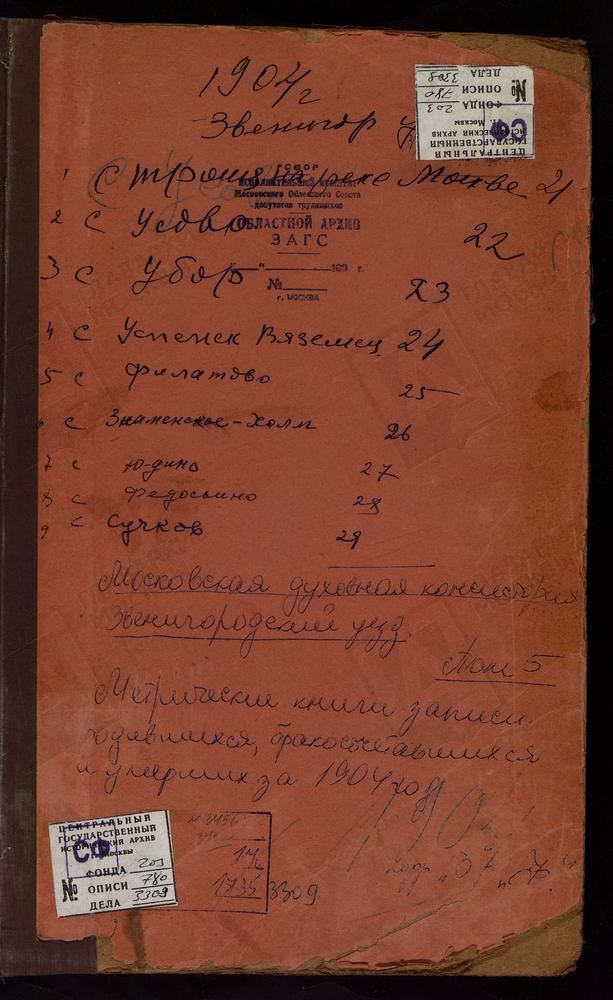 1904 г
Звенигор у
ЦЕНТРАЛЬНЫЙ
ГОСУДАРСТВЕННЫЙ
ИСТОРИЧЕСКИЙ АРХИВ
г. Москвы
СФ
ФОНДА 203
№ ОПИСИ 780
ДЕЛА 3309
РСФСР
ИСПОЛНИТЕЛЬНЫЙ КОМИТЕТ
Московского Областного Совета
депутатов трудящихся
ОБЛАСТНОЙ АРХИВ
ЗАГС
"___" 193 г.
№
г. МОСКВА
1 С на реке Москве 21
2 С Усово 22
3 С Убор 23
4 С Успенск Вяземец 24
5 С Филатово 25
6 С Знаменское-Холм 26
7 С Юдино 27
8 С Федосьино 28
9 С Сучков 29
Московская духовная консистория
Звенигородский уезд.
Том 5
Метрические книги записи
родившихся, бракосочетавшихся
и умерших за 1904 год
ЦЕНТРАЛЬНЫЙ
ГОСУДАРСТВЕННЫЙ
ИСТОРИЧЕСКИЙ АРХИВ
г. Москвы
СФ
ФОНДА 203
№ ОПИСИ 780
ДЕЛА 3309
1735
3309